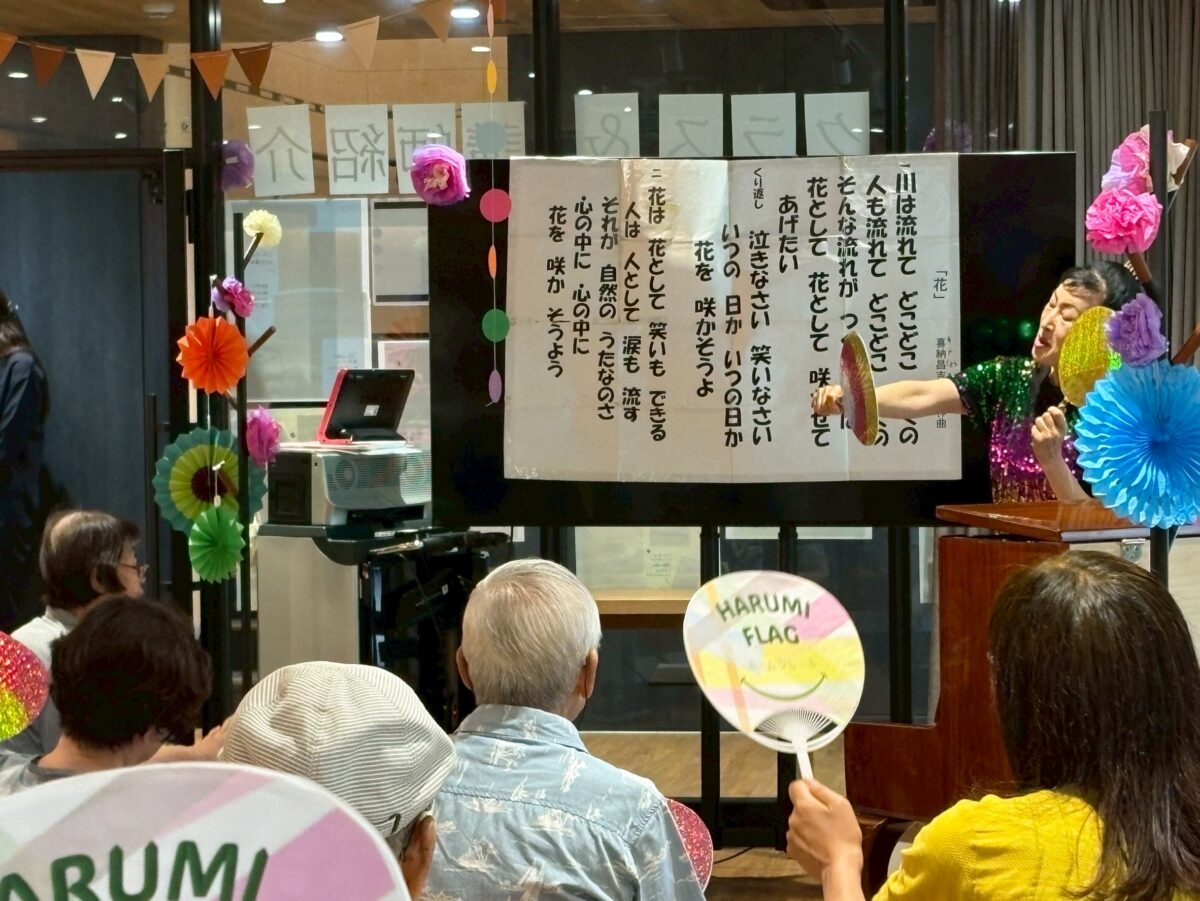 「花」
喜納昌吉
一川は流れて どこどこ
人も流れて どこどこ
そんな流れが つ
花として 花として 咲 せて
あげたい
くり返し 泣きなさい 笑いなさい
いつの 日か いつの日か
花を 咲かそうよ
二 花は 花として 笑いも できる
人は 人として 涙も 流す
それが 自然の うたなのさ
心の中に 心の中に
花を 咲か そうよう
クラス&講師紹介
HARUMI
FLAG
ARUMI